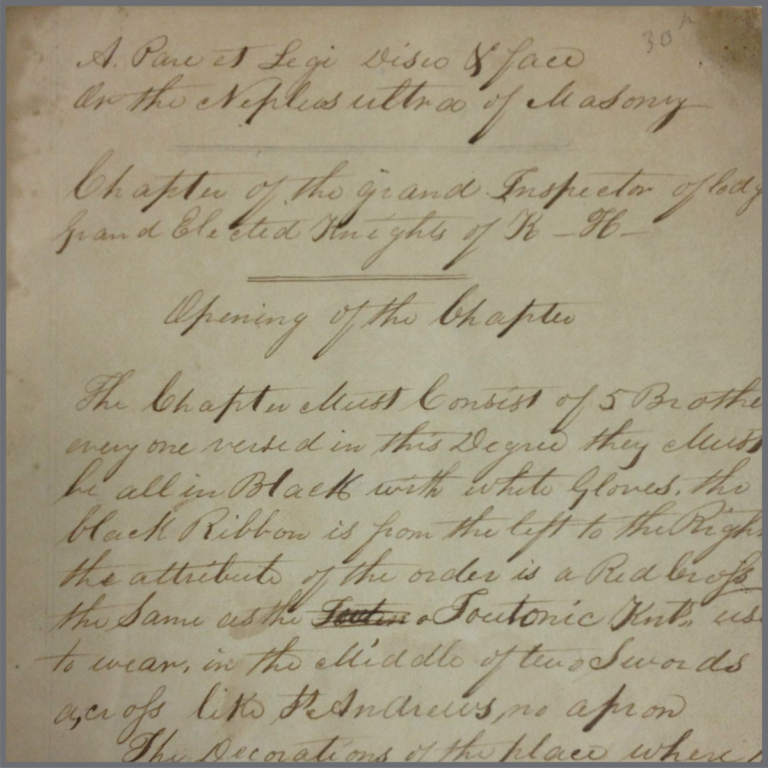 30th
A. Pare et Legi Disco & face
Or the Neplus ultra of Masonry
Chapter of the grand Inspector of lodg
grand Elected Knights of K - H -
Opening of the Chapter
The Chapter Must Consist of 5 Brothe
every one versed in this Degree they Must
be all in Black with white Gloves. the
black Ribbon is from the left to the Righ
the attribute of the order is a Red Cross
the Same as the Toutonic Knts us
to wear, in the Middle of two Swords
across like St. Andrews, no apron
The Decorations of the place where